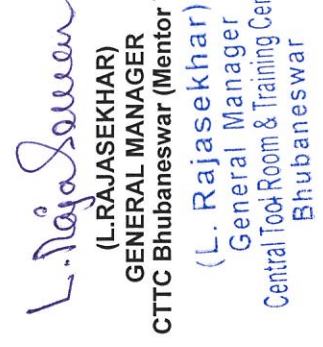 L. Rajasekhar
(L.RAJASEKHAR)
GENERAL MANAGER
CTTC Bhubaneswar (Mentor
(L. Rajasekhar)
General Manager
Central Tool Room & Training Cen
Bhubaneswar